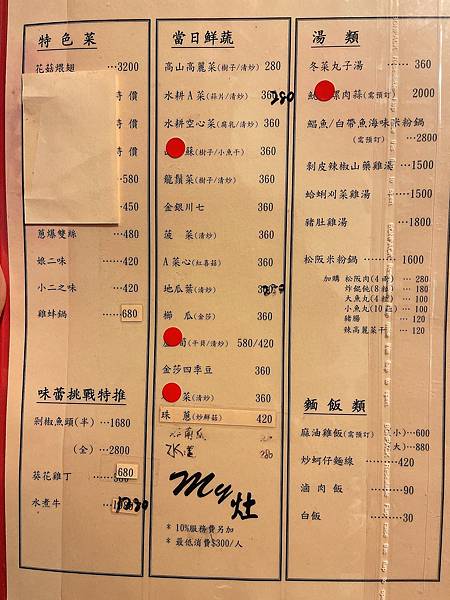 特色菜
花菇煨翅 …3200
特價
特價
…580
…450
蔥爆雙絲 …480
娘二味 …420
小二之味 …420
雞蚌鍋 680
味蕾挑戰特推
剁椒魚頭(半) …1680
(全) …2800
葵花雞丁 680
水煮牛
當日鮮蔬
高山高麗菜(樹子/清炒) 280
水耕A菜(蒜片/清炒) 280
水耕空心菜(腐乳/清炒) 360
蘇(樹子/小魚干) 360
龍鬚菜(樹子/清炒) 360
金銀川七 360
菠 菜(清炒) 360
A菜心(紅喜菇) 360
地瓜葉(清炒)
櫛 瓜(金莎) 360
筍(干貝/清炒) 580/420
金莎四季豆 360
菜(清炒) 360
珠 蔥(炒鮮菇) 420
水蓮 280
My灶
* 10%服務費另加
* 最低消費$300/人
湯類
冬菜丸子湯 …… 360
螺肉蒜(需預訂) 2000
鯧魚/白帶魚海味米粉鍋
(需預訂) …2800
剝皮辣椒山藥雞湯 …1500
蛤蜊刈菜雞湯 …1500
豬肚雞湯 …1800
松阪米粉鍋 …… 1600
加購 松阪肉(4兩) … 280
炸餛飩(8粒) … 180
大魚丸(4粒) … 120
小魚丸(10粒) … 100
豬腸 … 120
辣高麗菜干 … 120
麵飯類
麻油雞飯(需預訂) (小)…600
(大)…880
炒蚵仔麵線 …… 420
滷肉飯 ……90
白飯 ……30